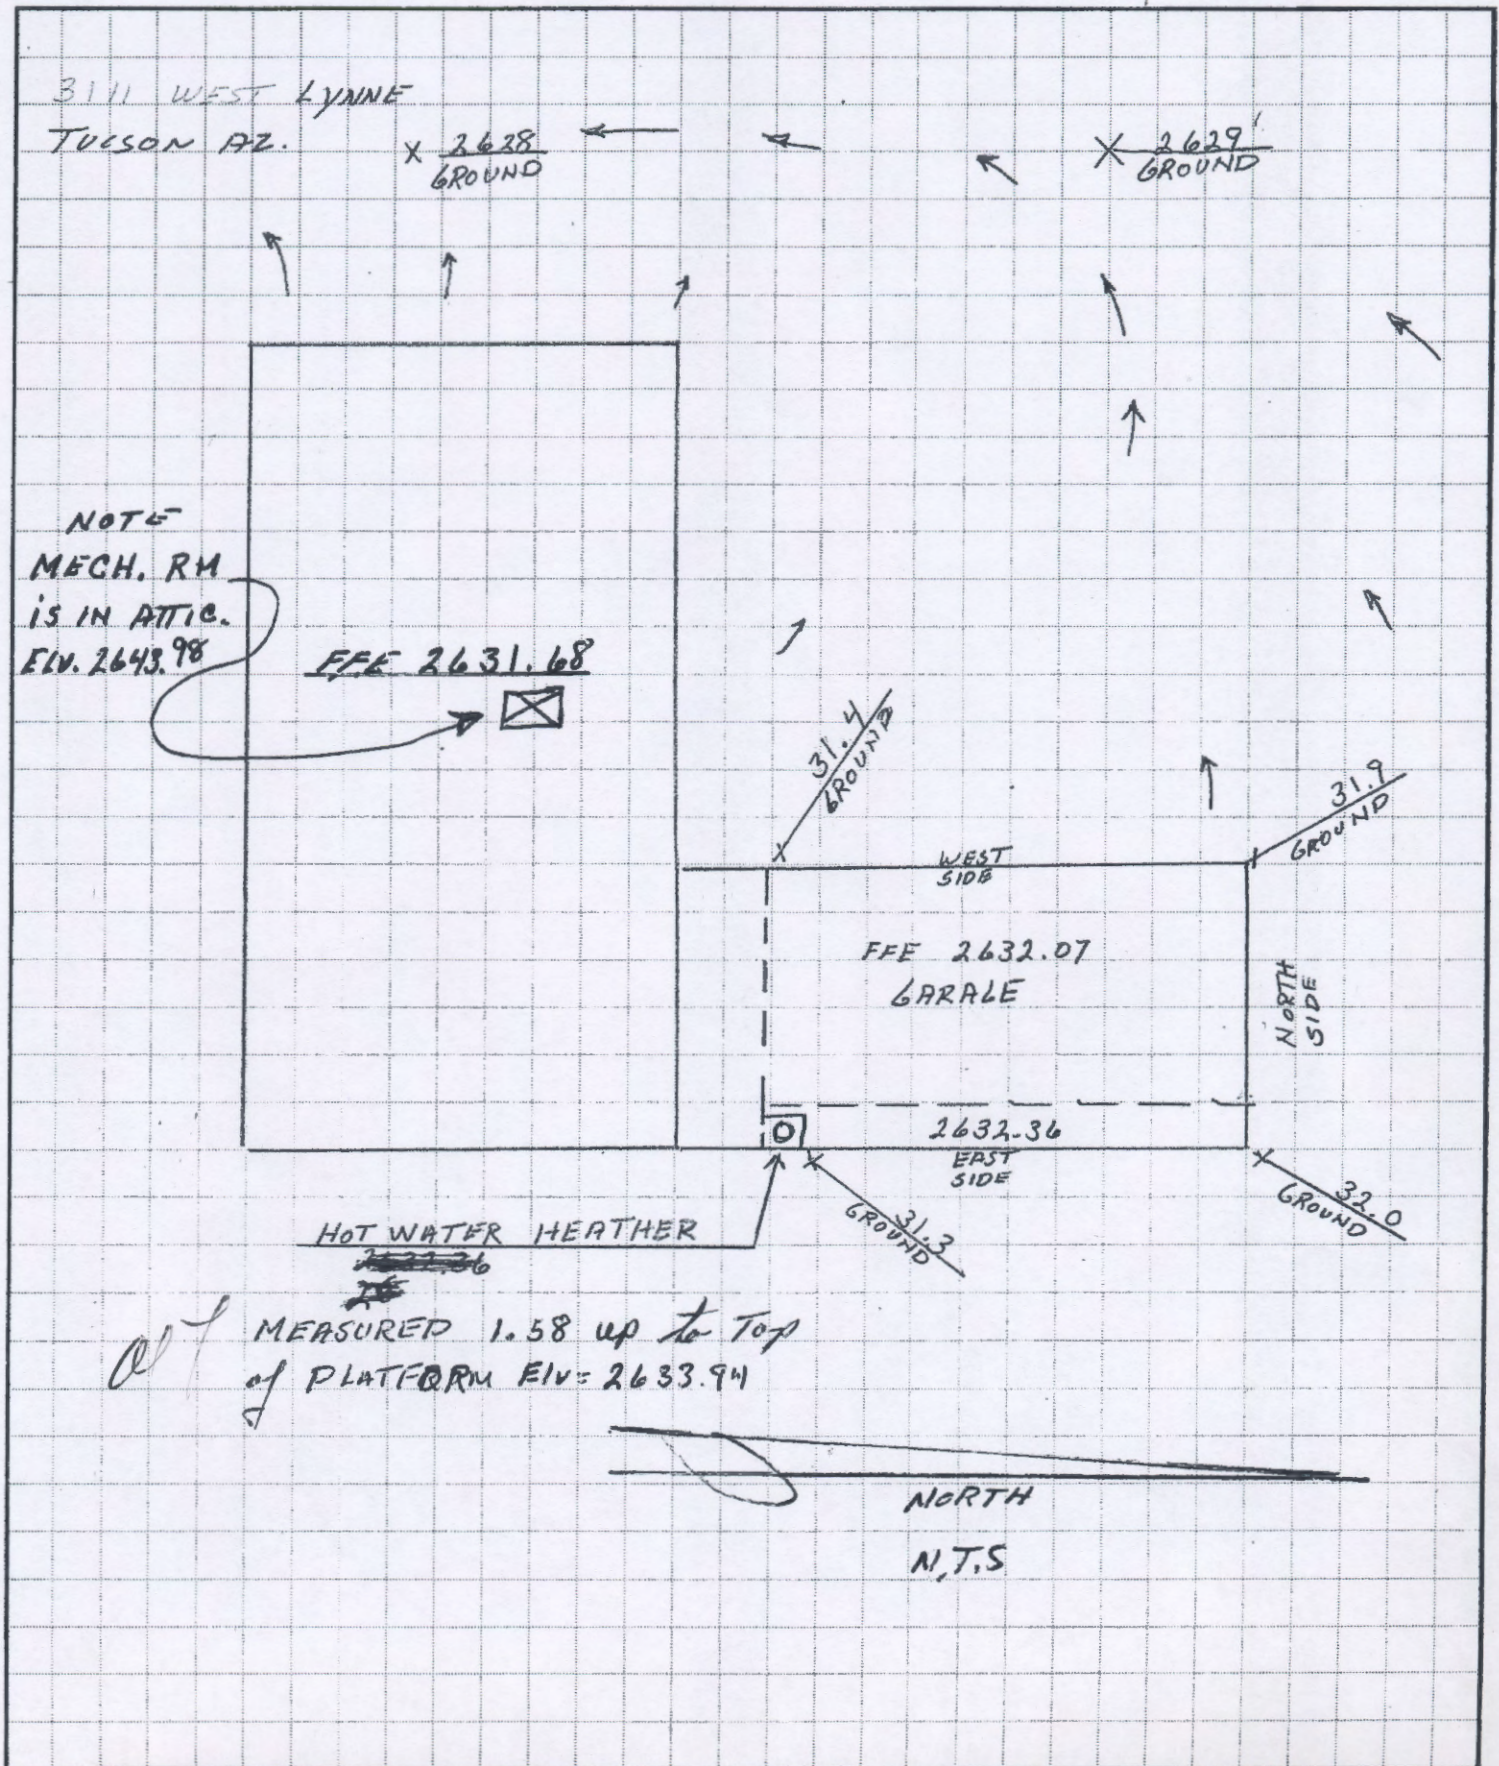 3111 WEST LYNNE
TUCSON AZ.
X 2628
GROUND
X 2629'
GROUND
NOTE
MECH. RM
is IN ATTIC.
Elv. 2643.98
FFE 2631.68
31.4
GROUND
31.9
GROUND
WEST
SIDE
FFE 2632.07
GARAGE
NORTH
SIDE
2632.36
EAST
SIDE
31.3
GROUND
32.0
GROUND
HOT WATER HEATHER
MEASURED 1.58 up to Top
of PLATFORM Elv= 2633.94
NORTH
N.T.S